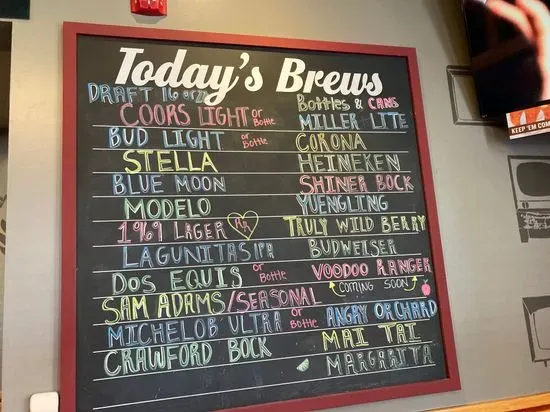 Today's Brews
DRAFT 16 or 22
COORS LIGHT or Bottle
BUD LIGHT or Bottle
STELLA
BLUE MOON
MODELO
1969 LAGER
LAGUNITAS IPA
DOS EQUIS or Bottle
SAM ADAMS/SEASONAL
MICHELOB ULTRA or Bottle
CRAWFORD BOCK
Bottles & CANS
MILLER LITE
CORONA
HEINEKEN
SHINER BOCK
YUENGLING
TRULY WILD BERRY
BUDWEISER
VOODOO RANGER
COMING SOON
ANGRY ORCHARD
MAI TAI
MARGARITA
KEEP 'EM